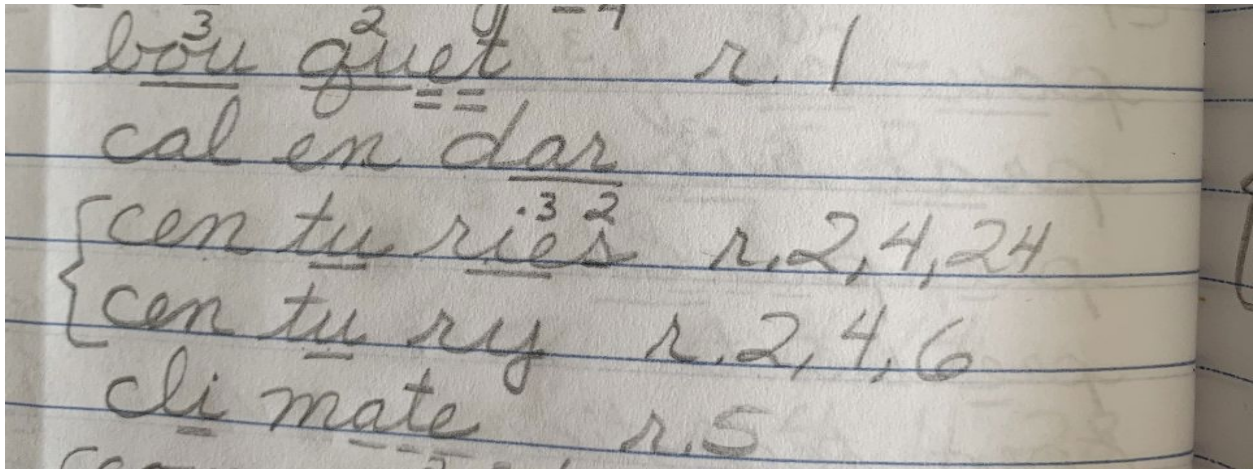 bou³ quet² r. 1
cal en dar
cen tu ries ·3 2 r. 2, 4, 24
cen tu ry r. 2, 4, 6
cli mate r. 5